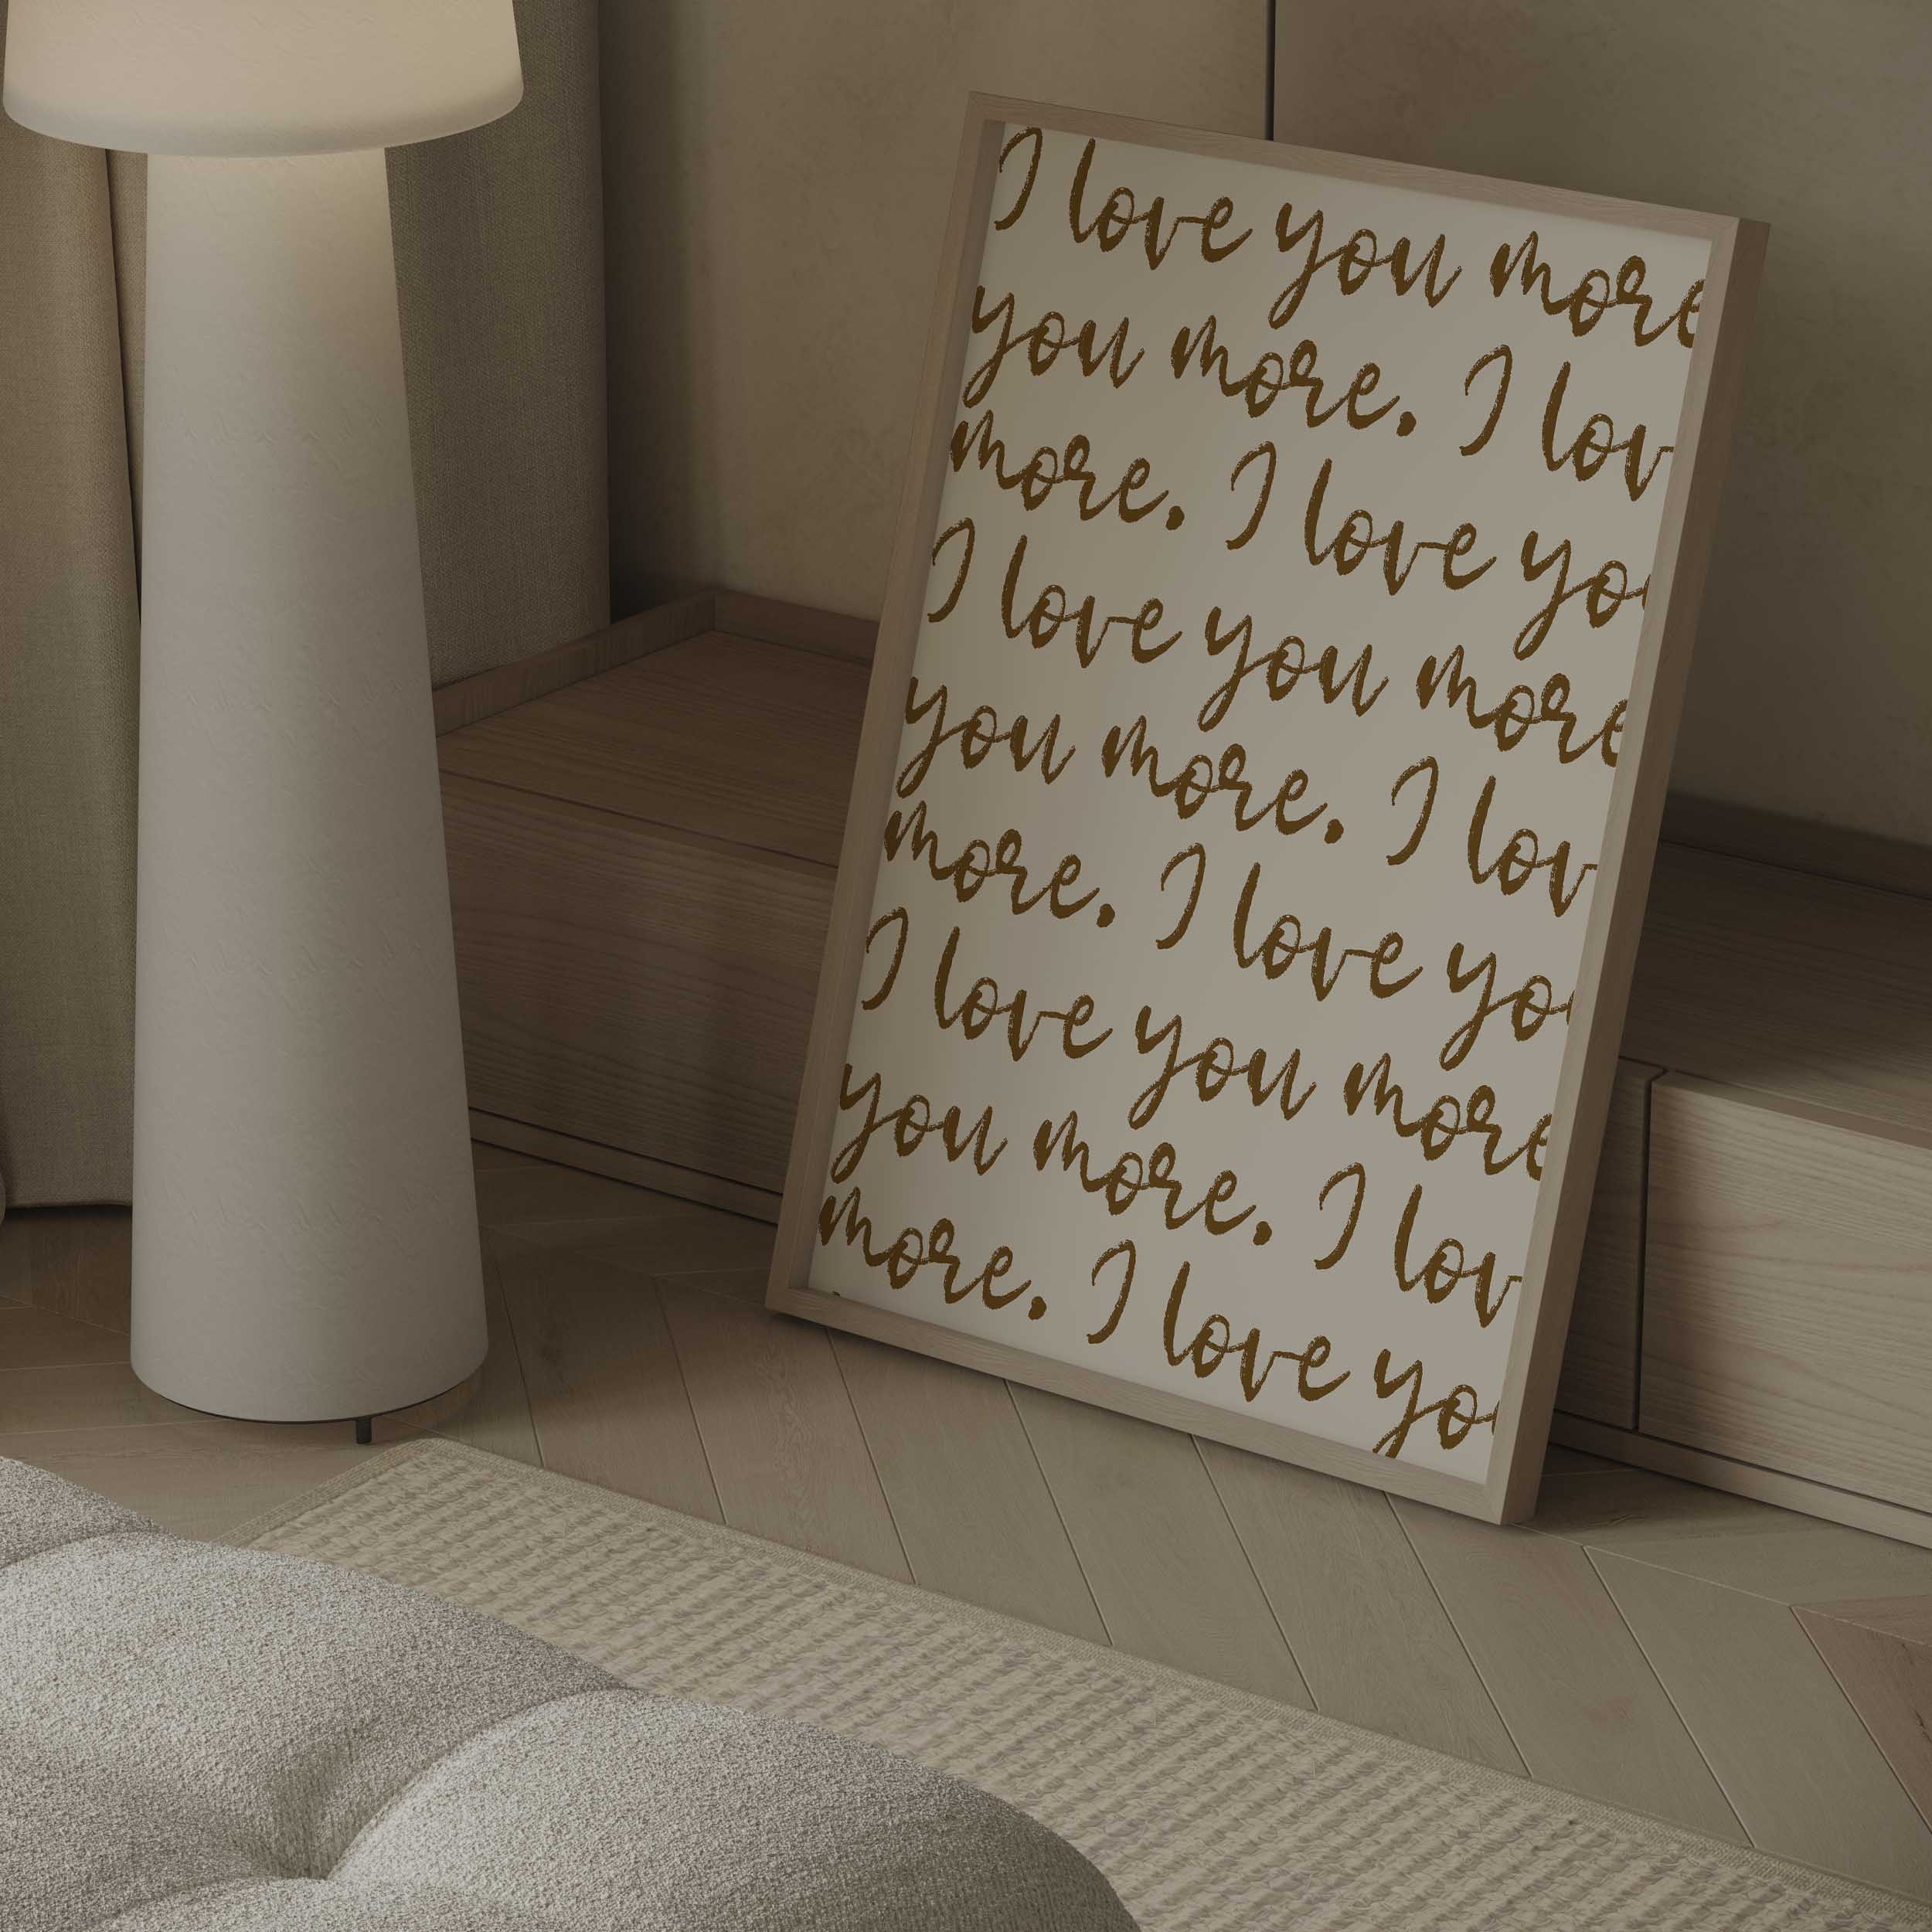 I love you more
you more. I lov
more. I love you
I love you more
you more. I lov
more. I love you
I love you more
you more. I lov
more. I love you